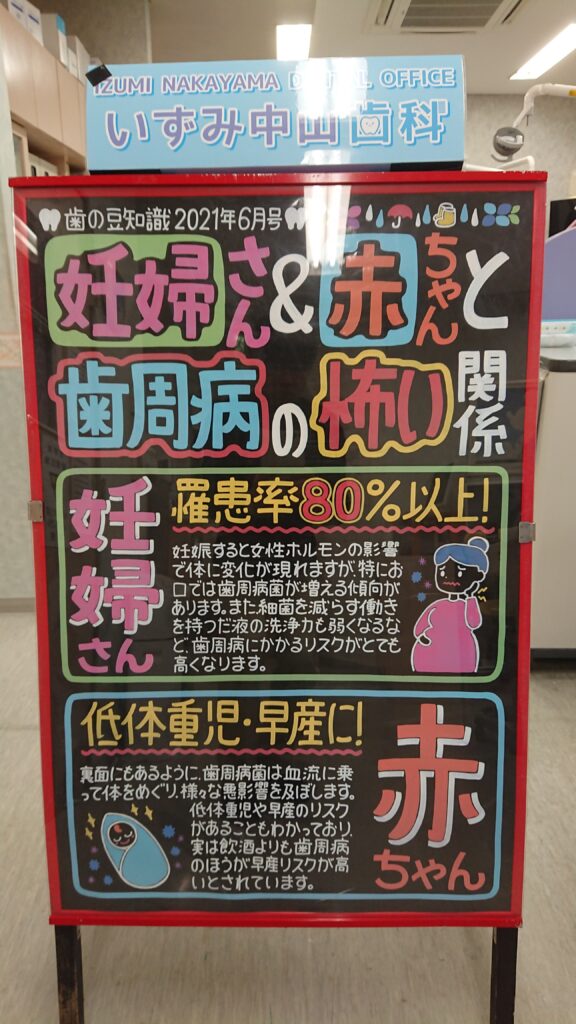 IZUMI NAKAYAMA DENTAL OFFICE
いずみ中山歯科
歯の豆知識 2021年6月号
妊婦さん&赤ちゃんと
歯周病の怖い関係
妊婦さん
罹患率80%以上!
妊娠すると女性ホルモンの影響
で体に変化が現れますが、特にお
口では歯周病菌が増える傾向が
あります。また細菌を減らす働き
を持つだ液の洗浄力も弱くなるな
ど、歯周病にかかるリスクがとても
高くなります。
低体重児・早産に!
赤ちゃん
裏面にもあるように、歯周病菌は血流に乗
って体をめぐり、様々な悪影響を及ぼします。
低体重児や早産のリスク
があることもわかっており、
実は飲酒よりも歯周病
のほうが早産リスクが高
いとされています。